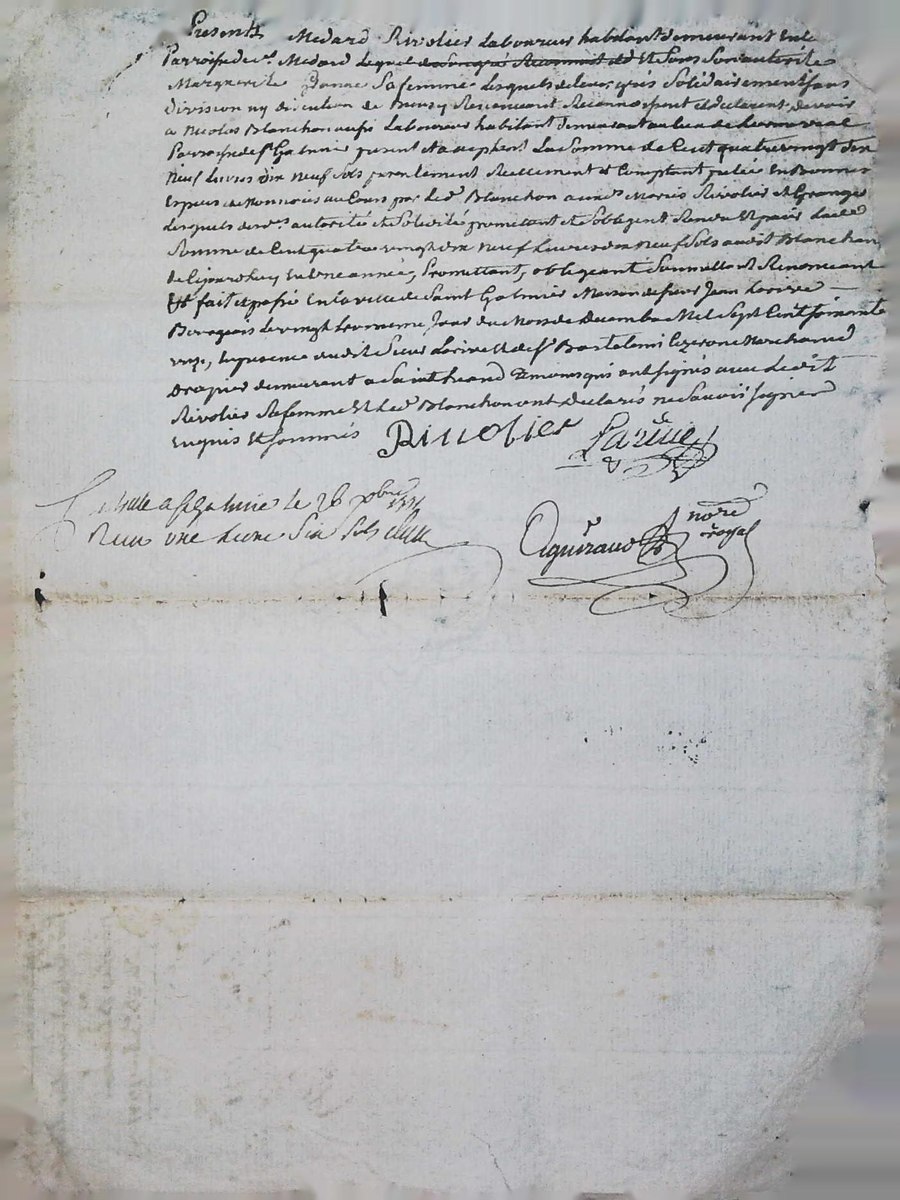 Presents Medard Rivolier Laboureur habitant demeurant En la
Parroisse de st. Medard Lequel et Sous Son autorité
Marguerite Sa femme Lesquels de leur grés Solidairement Sans
division ny discution de Biens y Renoncant Reconnoissent et declarent devoir
a Nicolas Blanchon aussi Laboureur habitant demeurant au lieu de
Parroisse de st Galmier present et acceptent La Somme de Cent quatre vingt dix
neuf Livres dix neuf Sols Reellement et Comptant En Bonnes
Especes au Cours par Led. Blanchon aux Mariés Rivolier et Granges
Lesquels de autorité et Solidité promettent et S'obligent Rendre et paier Lade
Somme de Cent quatre vingt dix neuf Livres dix neuf Sols audit Blanchon
de Cejourdhuy En Une année, Promettant, obligeant Soumettant Renonceant
fait et passé En la ville de Saint Galmier Maison de sieur Jean Larive
Bourgeois Le vingt jour du Mois de Decembre Mil Sept Cent Soixante
onze, En presence dudit Sieur Larive et de sr Bartelemi Marchand
Drapier demeurant a Saint heand Temoins qui ont Signés avec Ledit
Rivolier Sa femme et Led. Blanchon ont declarés ne Savoir Signer
Enquis et Sommés Rivolier Larive
a st Galmier le 26 xbre 1771
Recu une Livre Six Sols
nore
royal